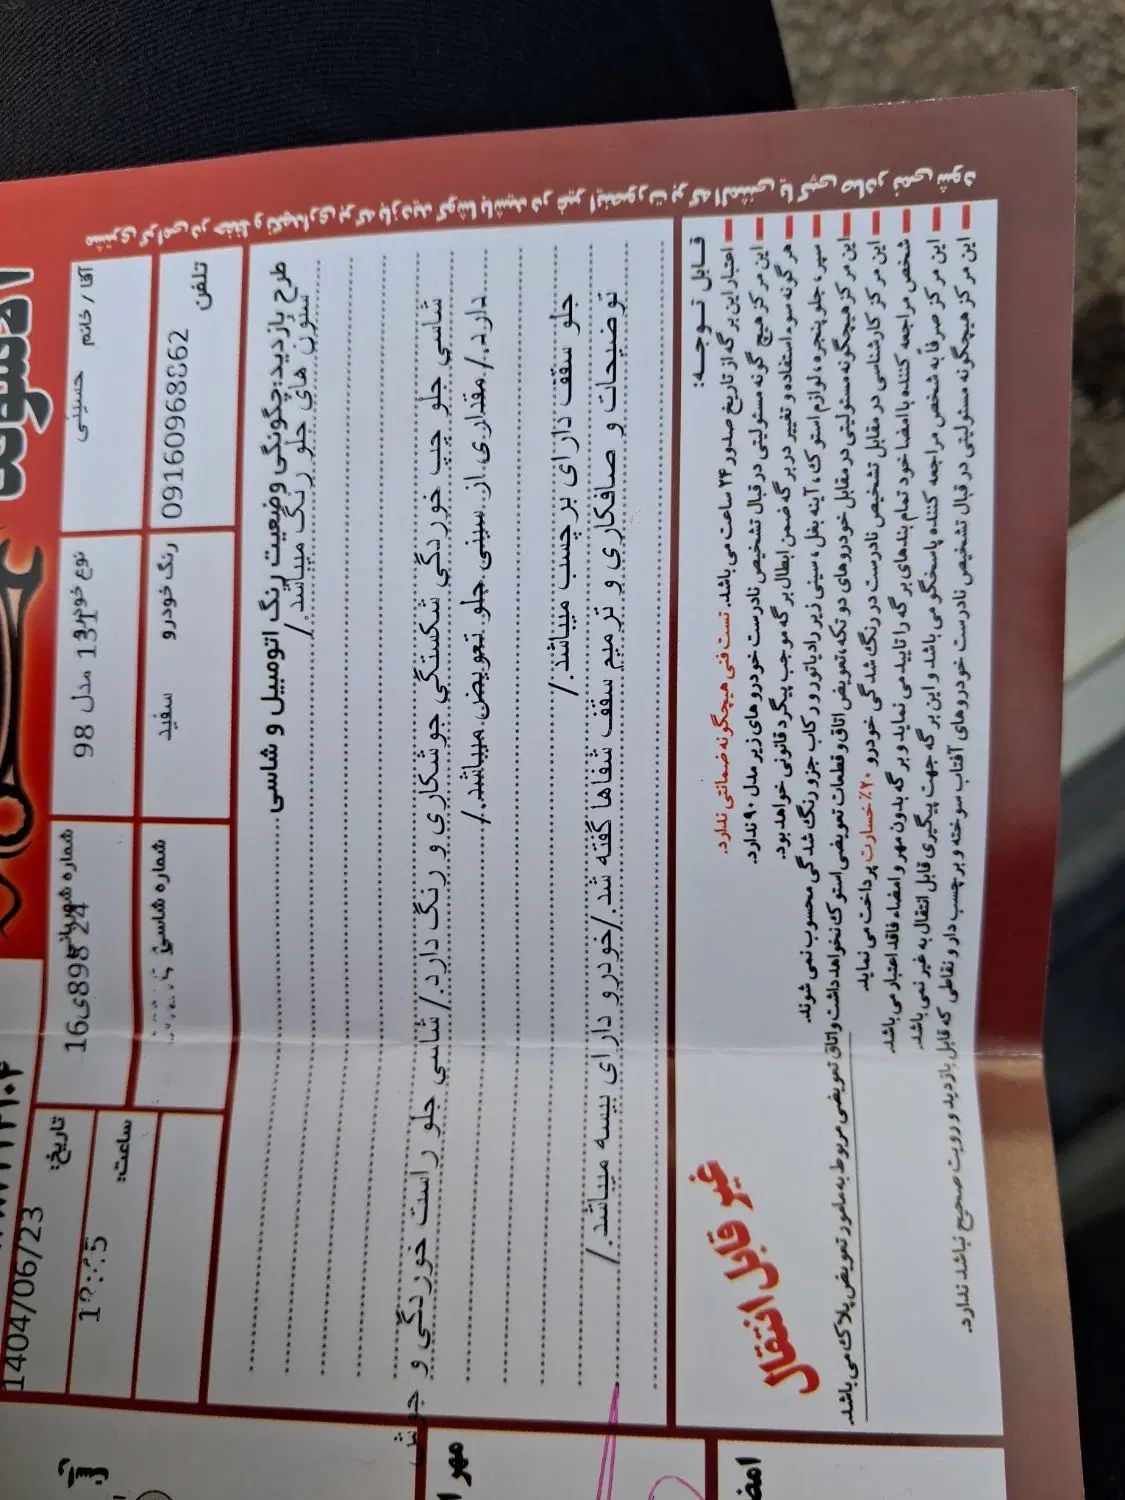 مشتری گرامی در حفظ و نگهداری برگه بازدید کوشا باشید در غیر اینصورت برگه المثنی یا کپی صادر نمی شود
آقا / خانم
حسینی
نوع خودرو
131 مدل 98
شماره شهربانی
16ی898 24
تاریخ:
1404/06/23
تلفن
09160968862
رنگ خودرو
سفید
شماره شاسی
ساعت:
طرح بازدید:چگونگی وضعیت رنگ اتومبیل و شاسی
ستون های جلو رنگ میباشد/
شاسي جلو چپ خوردگي شكستگي جوشكاري و رنگ دارد./شاسي جلو راست خوردگي و جوش
دارد./مقداری از سینی جلو تعویض میباشد./
جلو سقف دارای برچسب میباشد./
توضیحات و صافکاری و ترمیم سقف شفاها گفته شد/خودرو دارای بیسه میباشد./
قـابل تـوجـه:
اعتبار این برگه از تاریخ صدور ۲۴ ساعت می باشد. تست فنی هیچگونه ضمانتی ندارد.
این مرکز هیچ گونه مسئولیتی در قبال تشخیص نادرست خودروهای زیر مدل ۹۰ ندارد.
هر گونه سوء استفاده و تغییر در برگه ضمن ابطال برگه موجب پیگرد قانونی خواهد بود.
سپر، جلو پنجره، لوازم استوک، آینه بغل، سینی زیر رادیاتور و رکاب جزو رنگ شدگی محسوب نمی شوند.
این مرکز هیچگونه مسئولیتی در مقابل خودروهای دو تکه، تعویض اتاق و قطعات تعویضی استوک نخواهد داشت و اتاق تعویضی مربوط به مامور تعویض پلاک می باشد.
این مرکز کارشناسی در مقابل تشخیص نادرست در رنگ شدگی خودرو ۲۰٪ خسارت پرداخت می نماید.
شخص مراجعه کننده با امضا خود تمام بندهای برگه را تایید می نماید و برگه بدون مهر و امضاء فاقد اعتبار می باشد.
این مرکز صرفاً به شخص مراجعه کننده پاسخگو می باشد و این برگه جهت پیگیری قابل انتقال به غیر نمی باشد.
این مرکز هیچگونه مسئولیتی در قبال تشخیص نادرست خودروهای آفتاب سوخته و برچسب دار و نقاطی که قابل بازدید و رویت صحیح نباشد ندارد.
غیر قابل انتقال